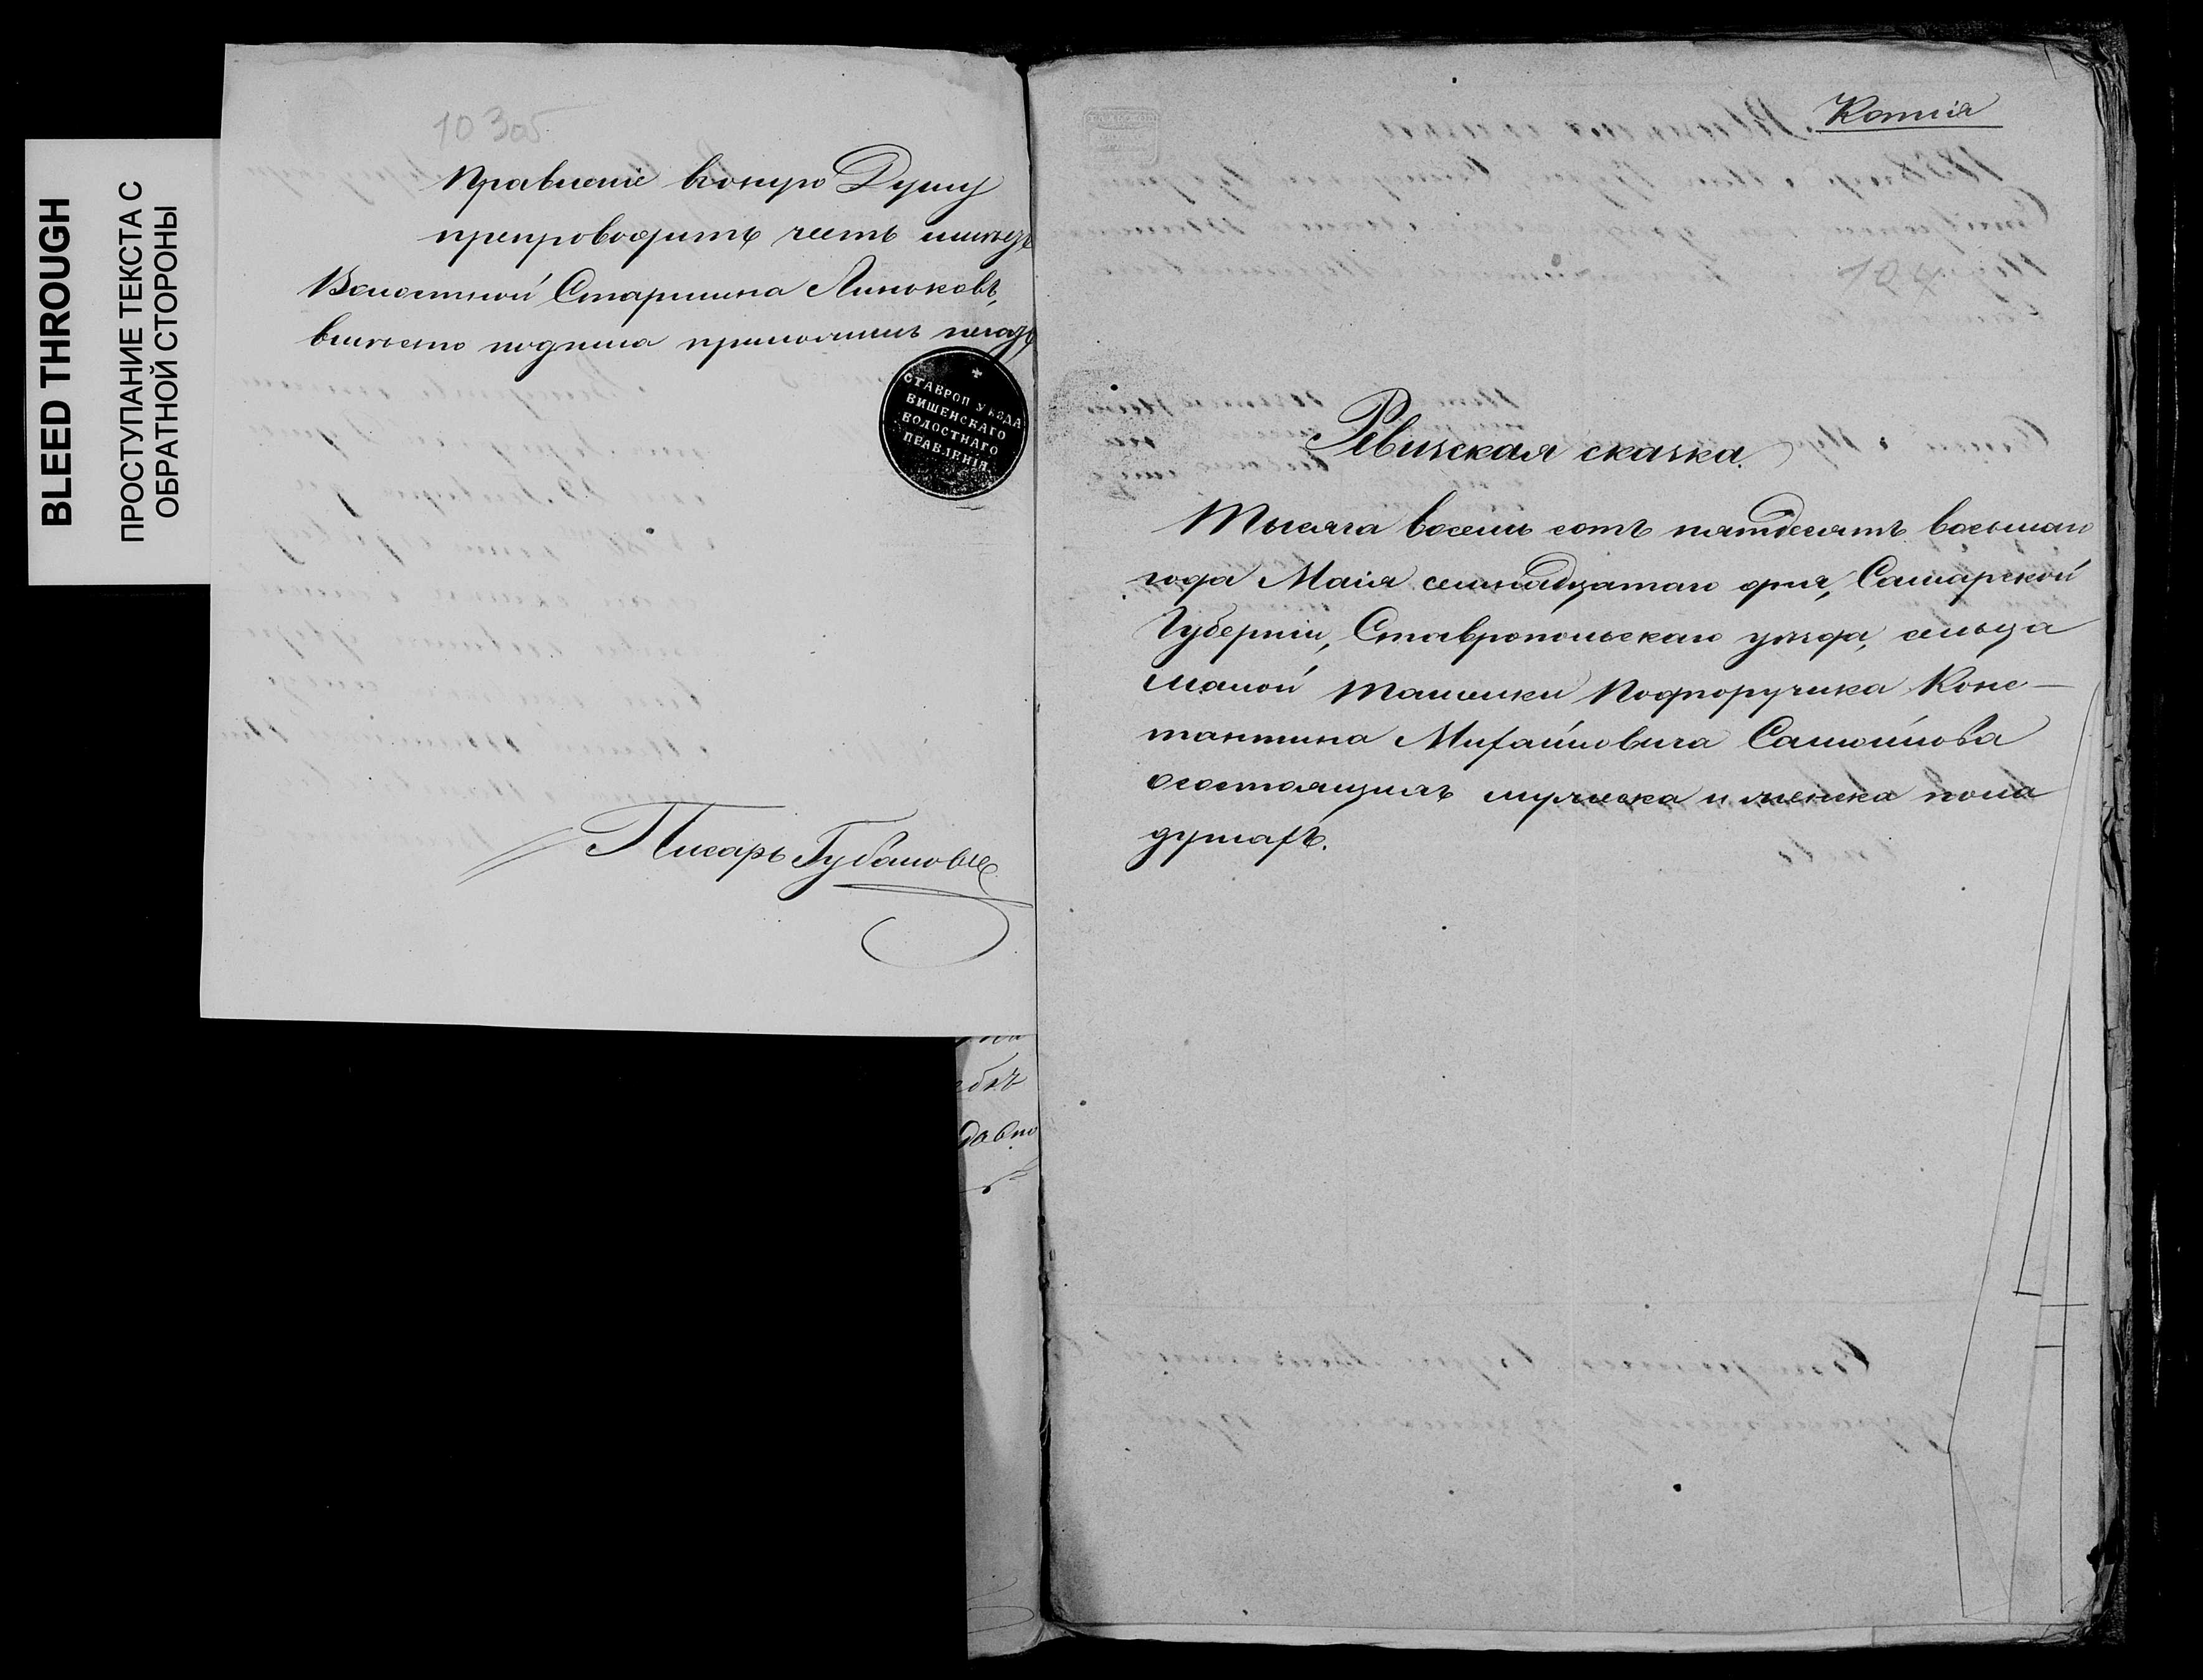 BLEED THROUGH
ПРОСТУПАНИЕ ТЕКСТА С
ОБРАТНОЙ СТОРОНЫ
10 305
Правленіе вооную Думу
препроводить честь имѣетъ
Волостной Старшина Линьковъ,
вмѣсто подписа приложилъ печать
СТАВРОП УѢЗДА
ВИШЕНСКАГО
ВОЛОСТНАГО
ПРАВЛЕНІЯ
Писарь Губановъ
Копія
104
Ревизская сказка.
Тысяча восемь сотъ пятдесятъ восьмаго
года Маія семнадцатаго дня, Самарской
Губерніи, Ставропольскаго уѣзда, сельца
малой Ташолки Подпоручика Конс-
тантина Михайловича Самойлова
осостоящихъ мужеска и женска пола
душахъ.